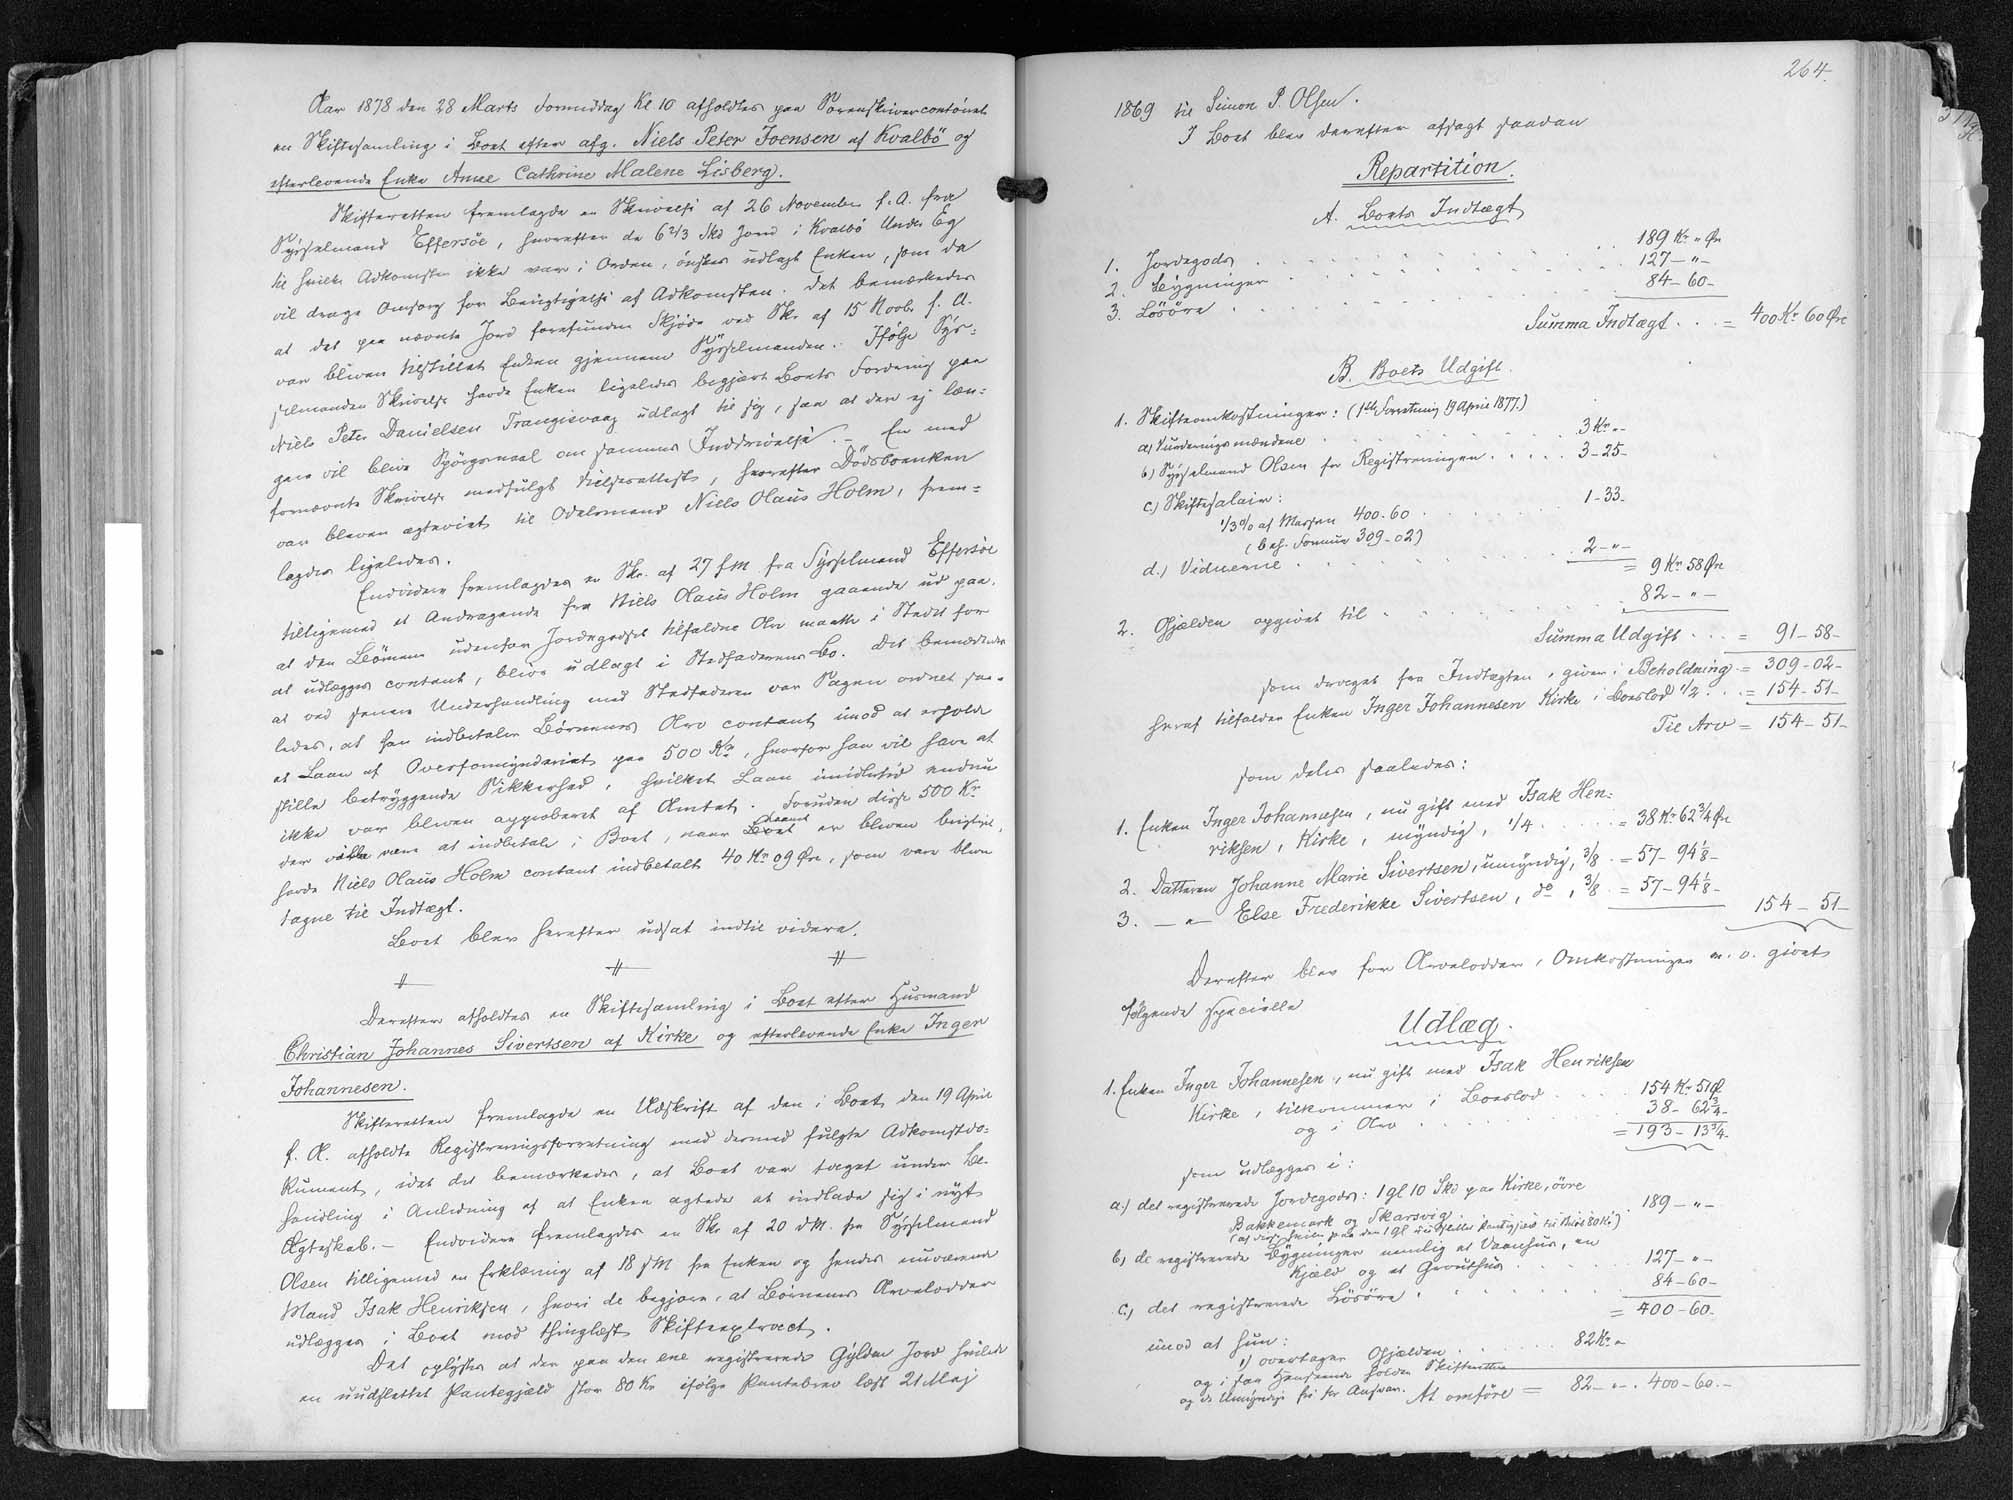 Aar 1878 den 28 Marts Formiddag Kl 10 afholdtes paa Sorenskrivercontoiret
en Skiftesamling i Boet efter afg. Niels Peter Joensen af Kvalbö og
efterlevende Enke Anne Cathrine Malene Lisberg.
Skifteretten fremlagde en Skrivelse af 26 November f. A. fra
Sysselmand Effersöe, hvorefter de 6 2/3 Skd Jord i Kvalbö Under Eg
til hvilke Adkomsten ikke var i Orden, önskes udlagt Enken, som da
vil drage Omsorg for Berigtigelse af Adkomsten. Det bemærkedes
at det paa nævnte Jord forefundne Skjöde ved Skr. af 15 Novbr f. A.
var bleven tilstillet Enken gjennem Sysselmanden. Ifölge Sys-
selmandens Skrivelse havde Enken ligeledes begjært Boets Fordring paa
Niels Peter Danielsen Trangisvaag udlagt til sig, saa at der ej læn-
gere vil blive Spörgsmaal om sammes Inddrivelse. – En med
fornævnte Skrivelse medfulgt Vielsesattest, hvorefter Dödsboenken
var bleven ægteviet til Odelsmand Niels Olaus Holm, frem-
lagdes ligeledes.
Endvidere fremlagdes en Skr. af 27 f M. fra Sysselmand Effersöe
tilligemed et Andragende fra Niels Olaus Holm gaaende ud paa,
at den Börnene udenfor Jordegodset tilfaldne Arv maatte i Stedet for
at udlægges contant, blive udlagt i Stedfaderens Bo. Det bemærkedes
at ved senere Underhandling med Stedfaderen var Sagen ordnet saa-
ledes, at han indbetaler Börnenes Arv contant imod at erholde
et Laan af Overformynderiet paa 500 Kr, hvorfor han vil have at
stille betryggende Sikkerhed, hvilket Laan imidlertid endnu
ikke var bleven approberet af Amtet. Foruden disse 500 Kr
der ville være at indbetale i Boet, naar Laanet er bleven berigtiget,
havde Niels Olaus Holm contant indbetalt 40 Kr 09 Öre, som vare blevne
tagne til Indtægt.
Boet blev herefter udsat indtil videre.
Derefter afholdtes en Skiftesamling i Boet efter Husmand
Christian Johannes Sivertsen af Kirke og efterlevende Enke Inger
Johannesen.
Skifteretten fremlagde en Udskrift af den i Boet den 19 April
f. A. afholdte Registreringsforretning med dermed fulgte Adkomstdo-
kument, idet det bemærkedes, at Boet var taget under Be-
handling i Anledning af at Enken agtede at indlade sig i nyt
Ægteskab. – Endvidere fremlagdes en Skr. af 20 d M. fra Sysselmand
Olsen tilligemed en Erklæring af 18 s M fra Enken og hendes nuværende
Mand Isak Henriksen, hvori de begjære, at Börnenes Arvelodder
udlægges i Boet mod thinglæst Skifteextract.
Det oplystes at der paa den ene registrerede Gylden Jord hvilede
en uudslettet Pantegjæld stor 80 Kr ifölge Pantebrev læst 21 Maj
264.
1869 til Simon P. Olsen.
I Boet blev derefter afsagt saadan
Repartition.
A. Boets Indtægt
1. Jordegods . . . 189 Kr " Öre
2. Bygninger . . . 127 – " –
3. Lösöre . . . 84 – 60 –
Summa Indtægt . . . = 400 Kr 60 Öre
B. Boets Udgift.
1. Skifteomkostninger: (1ste Forretning 19 April 1877.)
a) Vurderingsmændene . . . 3 Kr " –
b) Sysselmand Olsen for Registreringen . . . . . 3 – 25 –
c) Skiftesalair:
1/3 % af Massen 400-60 . . . 1 – 33 –
(beh. Formue 309-02)
d.) Vidnerne . . . 2 – " –
= 9 Kr 58 Öre
2. Gjælden opgivet til . . . 82 – " –
Summa Udgift . . . = 91 – 58 –
som draget fra Indtægten, giver i Beholdning = 309 – 02 –
heraf tilfalder Enken Inger Johannesen Kirke i Boeslod 1/2 . . = 154 – 51 –
Til Arv = 154 – 51 –
som deles saaledes:
1. Enken Inger Johannesen, nu gift med Isak Hen-
riksen, Kirke, myndig, 1/4 . . . . = 38 Kr 62 3/4 Öre
2. Datteren Johanne Marie Sivertsen, umyndig, 3/8 . = 57 – 94 1/8 –
3. – " – Else Frederikke Sivertsen, do, 3/8 . = 57 – 94 1/8 –
154 – 51 –
Derefter blev for Arvelodder, Omkostninger m. v. givet
fölgende specielle
Udlæg.
1. Enken Inger Johannesen, nu gift med Isak Henriksen
Kirke, tilkommer i Boeslod . . . . 154 Kr 51 Ö
og i Arv . . . 38 – 62 3/4 –
= 193 – 13 3/4 –
som udlægges i:
a.) det registrerede Jordegods: 1 gl 10 Skd paa Kirke, övre
Bakkemark og Skarsvig . . . 189 – " –
b) de registrerede Bygninger nemlig et Vaanhus, en
Kjæld og et Grouthus . . . 127 – " –
c) det registrerede Lösöre . . . 84 – 60 –
= 400 – 60 –
imod at hun:
1) overtager Gjælden . . . 82 Kr "
og i saa Henseende holder Skifteretten
og de Umyndige fri for Ansvar. At omföre = 82 – " – . 400 – 60. –